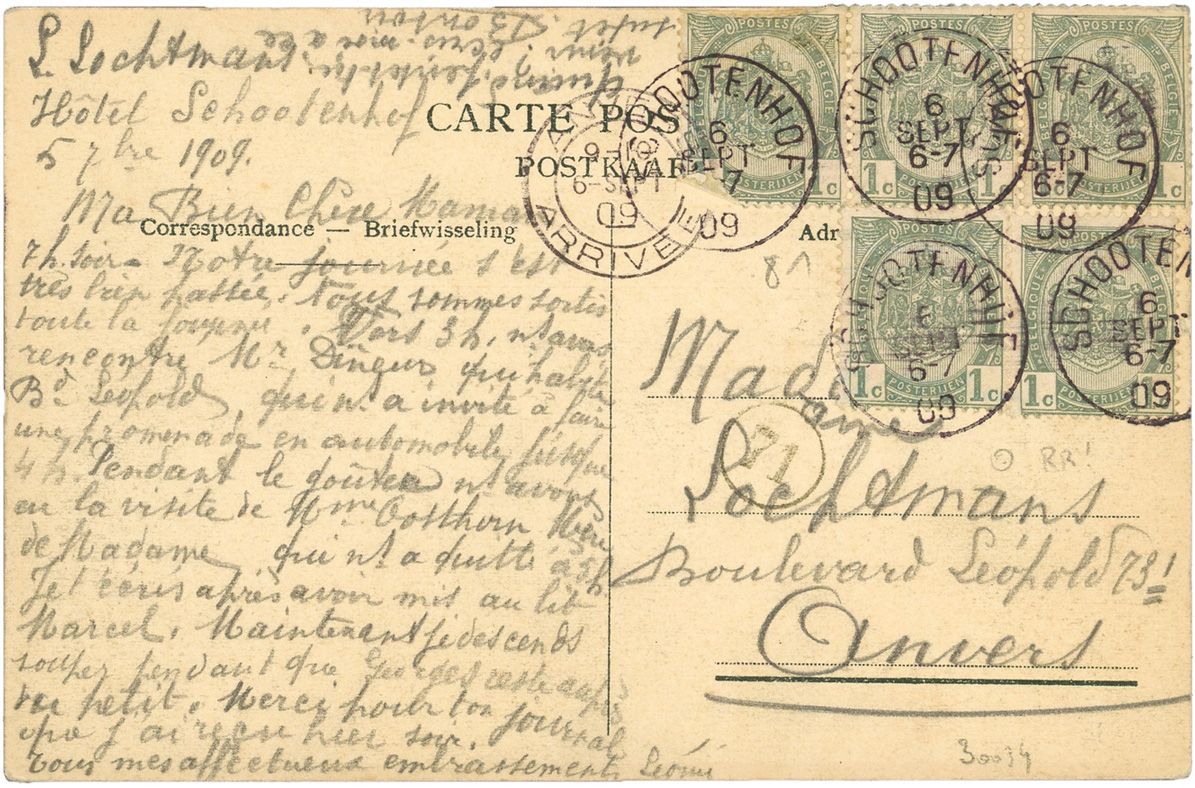 L. Lochtmans
Hôtel Schootenhof
5 7bre 1909.
CARTE POS
POSTKAAR
Correspondance — Briefwisseling
Adr
Ma Bien Chère Maman
7h. soir - Notre journée s'est
très bien passée. Nous sommes sortis
toute la journée. Vers 3h. ns. avons
rencontré Mr. Dingus qui habite
Bd. Léopold, qui ns. a invité à faire
une promenade en automobile jusque
4 h. Pendant le goûter ns. avons
eu la visite de Mme Oosthorn Mère
de Madame, qui ns. a quitté à 5h
Je t'écris après avoir mis au lit
Marcel. Maintenant je descends
souper pendant que Georges reste auprès
du petit. Merci pour ton journal
que j'ai reçu hier soir.
Tous mes affectueux embrassements
Madame
Lochtmans
Boulevard Léopold 73!
Anvers
81
RR!
30034
71
ARRIVEE
9-
6-SEPT
09
SCHOOTENHOF
6
SEPT
7
09
SCHOOTENHOF
6
SEPT
6-7
09
SCHOOTENHOF
6
SEPT
6-7
09
SCHOOTENHOF
6
SEPT
6-7
09
SCHOOTEN
6
SEPT
6-7
09
POSTES
BELGIQUE
BELGIE
1c
POSTERIJEN
1c
POSTES
1c
1c
POSTES
BELGIE
POSTERIJEN
1c
1c
POSTERIJEN
1c
1c
POSTERIJEN